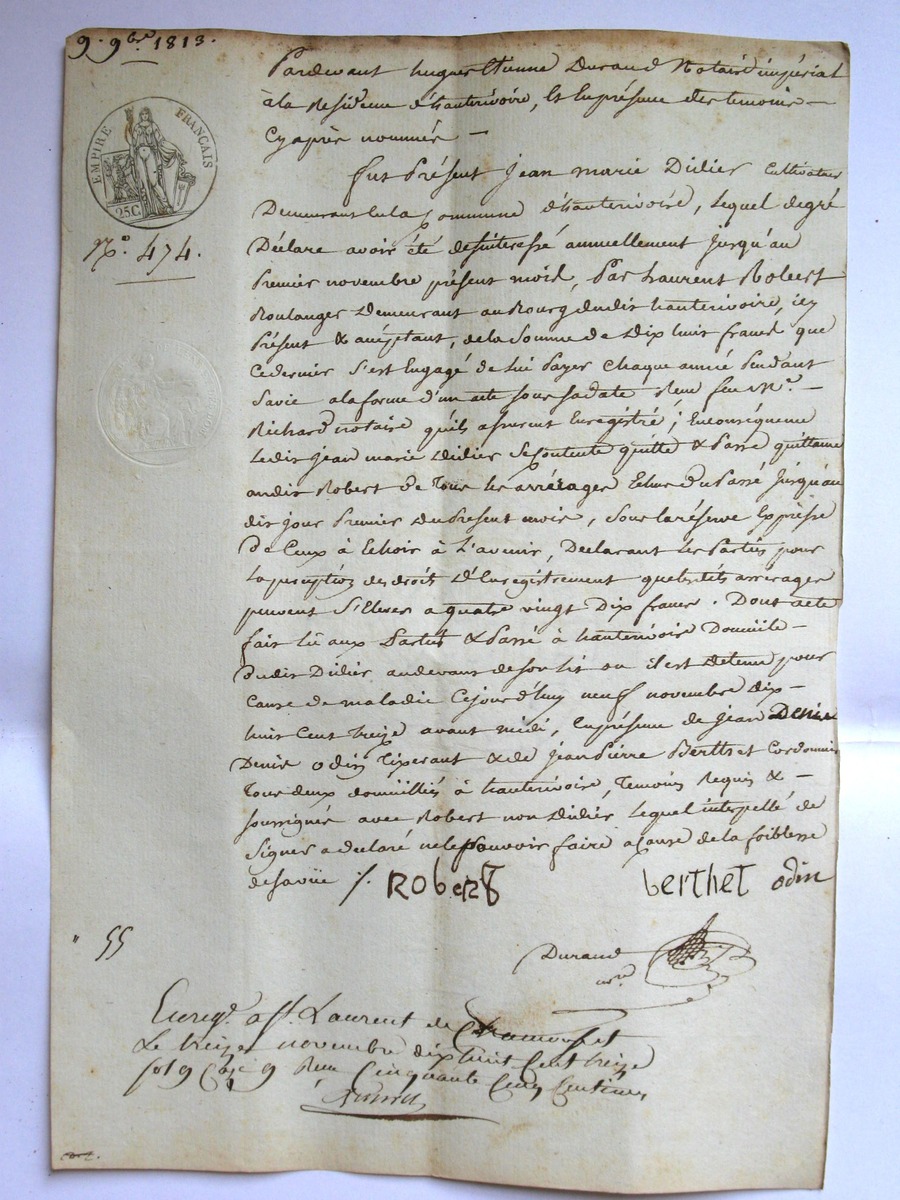 9. 9bre 1813.
EMPIRE FRANÇAIS
25C
No. 474.
Pardevant hugues Etienne Durand Notaire impérial
à la Residence d'hauterivoire, Et En présence des temoins —
Cy après nommés —
fut Présent Jean marie Didier Cultivateur
Demeurant En la Commune d'hauterivoire, lequel degré
Déclare avoir été desinteressé annuellement jusqu'au
Premier novembre présent mois, Par Laurent Robert
Boulanger Demeurant au Bourg dudit hauterivoire, icy
Présent & acceptant, de la Somme de Dix huit francs que
Ce dernier S'est Engagé de lui Payer Chaque année Pendant
Sa vie a la forme d'un acte sous sa date Reçu feu Me. —
Richard notaire qu'ils assurent Enregistré ; En conséquence
Ledit Jean marie Didier Se Contente quitte & Passe quittance
audit Robert de Tous les arrérages Echus du Passé Jusqu'au
dit jour Premier du Present mois, Sous la réserve Expresse
De Ceux à Echoir à L'avenir, Declarant les Parties pour
La perception des droits D'Enregistrement que lesdits arrerages
peuvent S'Elever a quatre vingt Dix francs. Dont acte
fait lû aux Parties & Passé à hauterivoire Domicile —
Dudit Didier, au devant de son lit ou il est detenu pour
Cause de maladie Ce jourd'huy neuf novembre dix —
huit Cent treize avant midi, En présence de Jean Denis
Denis odin Tixerant & de Jean Pierre Berthet Cordonnier
Tous deux domiciliés à hauterivoire, Temoins Requis & —
soussignés avec Robert non Didier Lequel interpellé de
Signer a declaré ne le Pouvoir faire a Cause de la foiblesse
de sa vüe /.
Robert berthet odin
Durand
nre
" 55
Enregé. a St. Laurent de Chamousset
Le treize novembre dix huit Cent treize
fol 9 Case 9 Reçu Cinquante Cinq Centimes